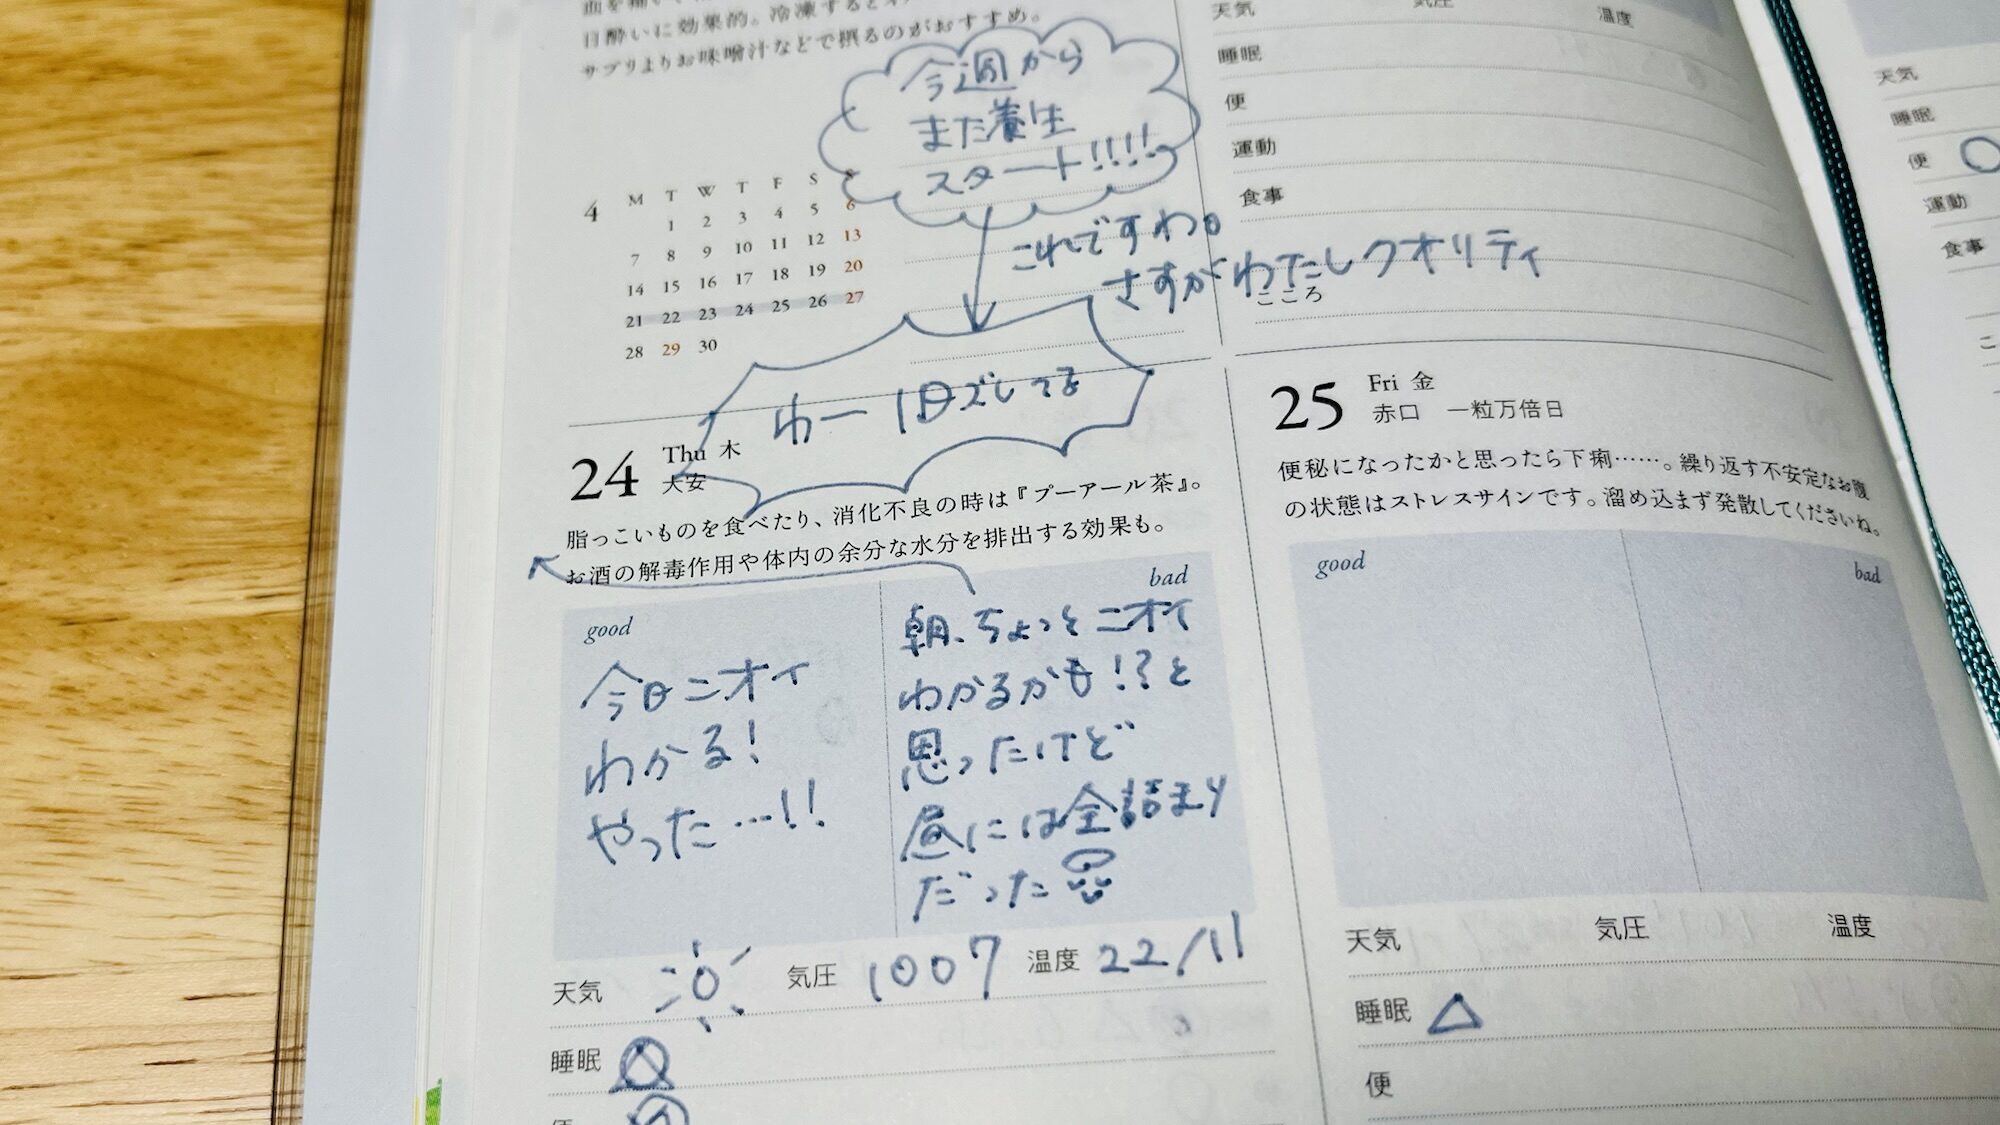 日酔いに効果的。冷凍すると
サプリよりお味噌汁などで摂るのがおすすめ。
今週から
また養生
スタート!!!!
4
M T W T F S S
1 2 3 4 5 6
7 8 9 10 11 12 13
14 15 16 17 18 19 20
21 22 23 24 25 26 27
28 29 30
これですわ。
さすがわたしクオリティ
わー1日ズレてる
24 Thu 木
大安
脂っこいものを食べたり、消化不良の時は『プーアール茶』。
お酒の解毒作用や体内の余分な水分を排出する効果も。
good
今日ニオイ
わかる!
やった…!!
bad
朝、ちょっとニオイ
わかるかも!?と
思ったけど
昼には全詰まり
だった
天気 気圧 1007 温度 22/11
睡眠
天気 気圧 温度
睡眠
便
運動
食事
こころ
25 Fri 金
赤口 一粒万倍日
便秘になったかと思ったら下痢……。繰り返す不安定なお腹
の状態はストレスサインです。溜め込まず発散してくださいね。
good
bad
天気 気圧 温度
睡眠 △
便
天気
睡眠
便 ○
運動
食事